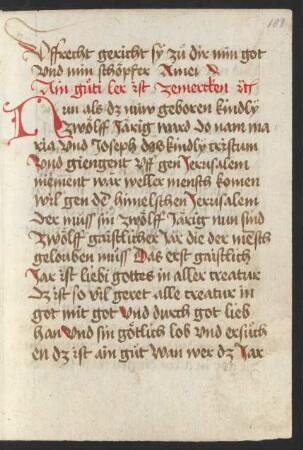 183
Uffrecht gericht sÿ zů dir min got
vnd min schöpfer Amen
Ain gůti ler ist zemercken
Nun als dz nüw geboren kindly
zwölff Järig ward do nam ma
ria vnd Joseph das kindly cristum
vnd giengent vff gen Jerusalem
niement war weller mensch komen
wil gen dem himelschen Jerusalem
der můss sin zwölff Järig nun sind
zwölff gaistlicher Jar die der mensch
gelouben můss Das erst gaistlich
Jar ist liebi gottes in aller creatur
Dz ist so vil geret alle creatur in
got mit got vnd durch got lieb
han vnd sin götlich lob vnd ersůch
en dz ist ain gůt wan wer dz Jar